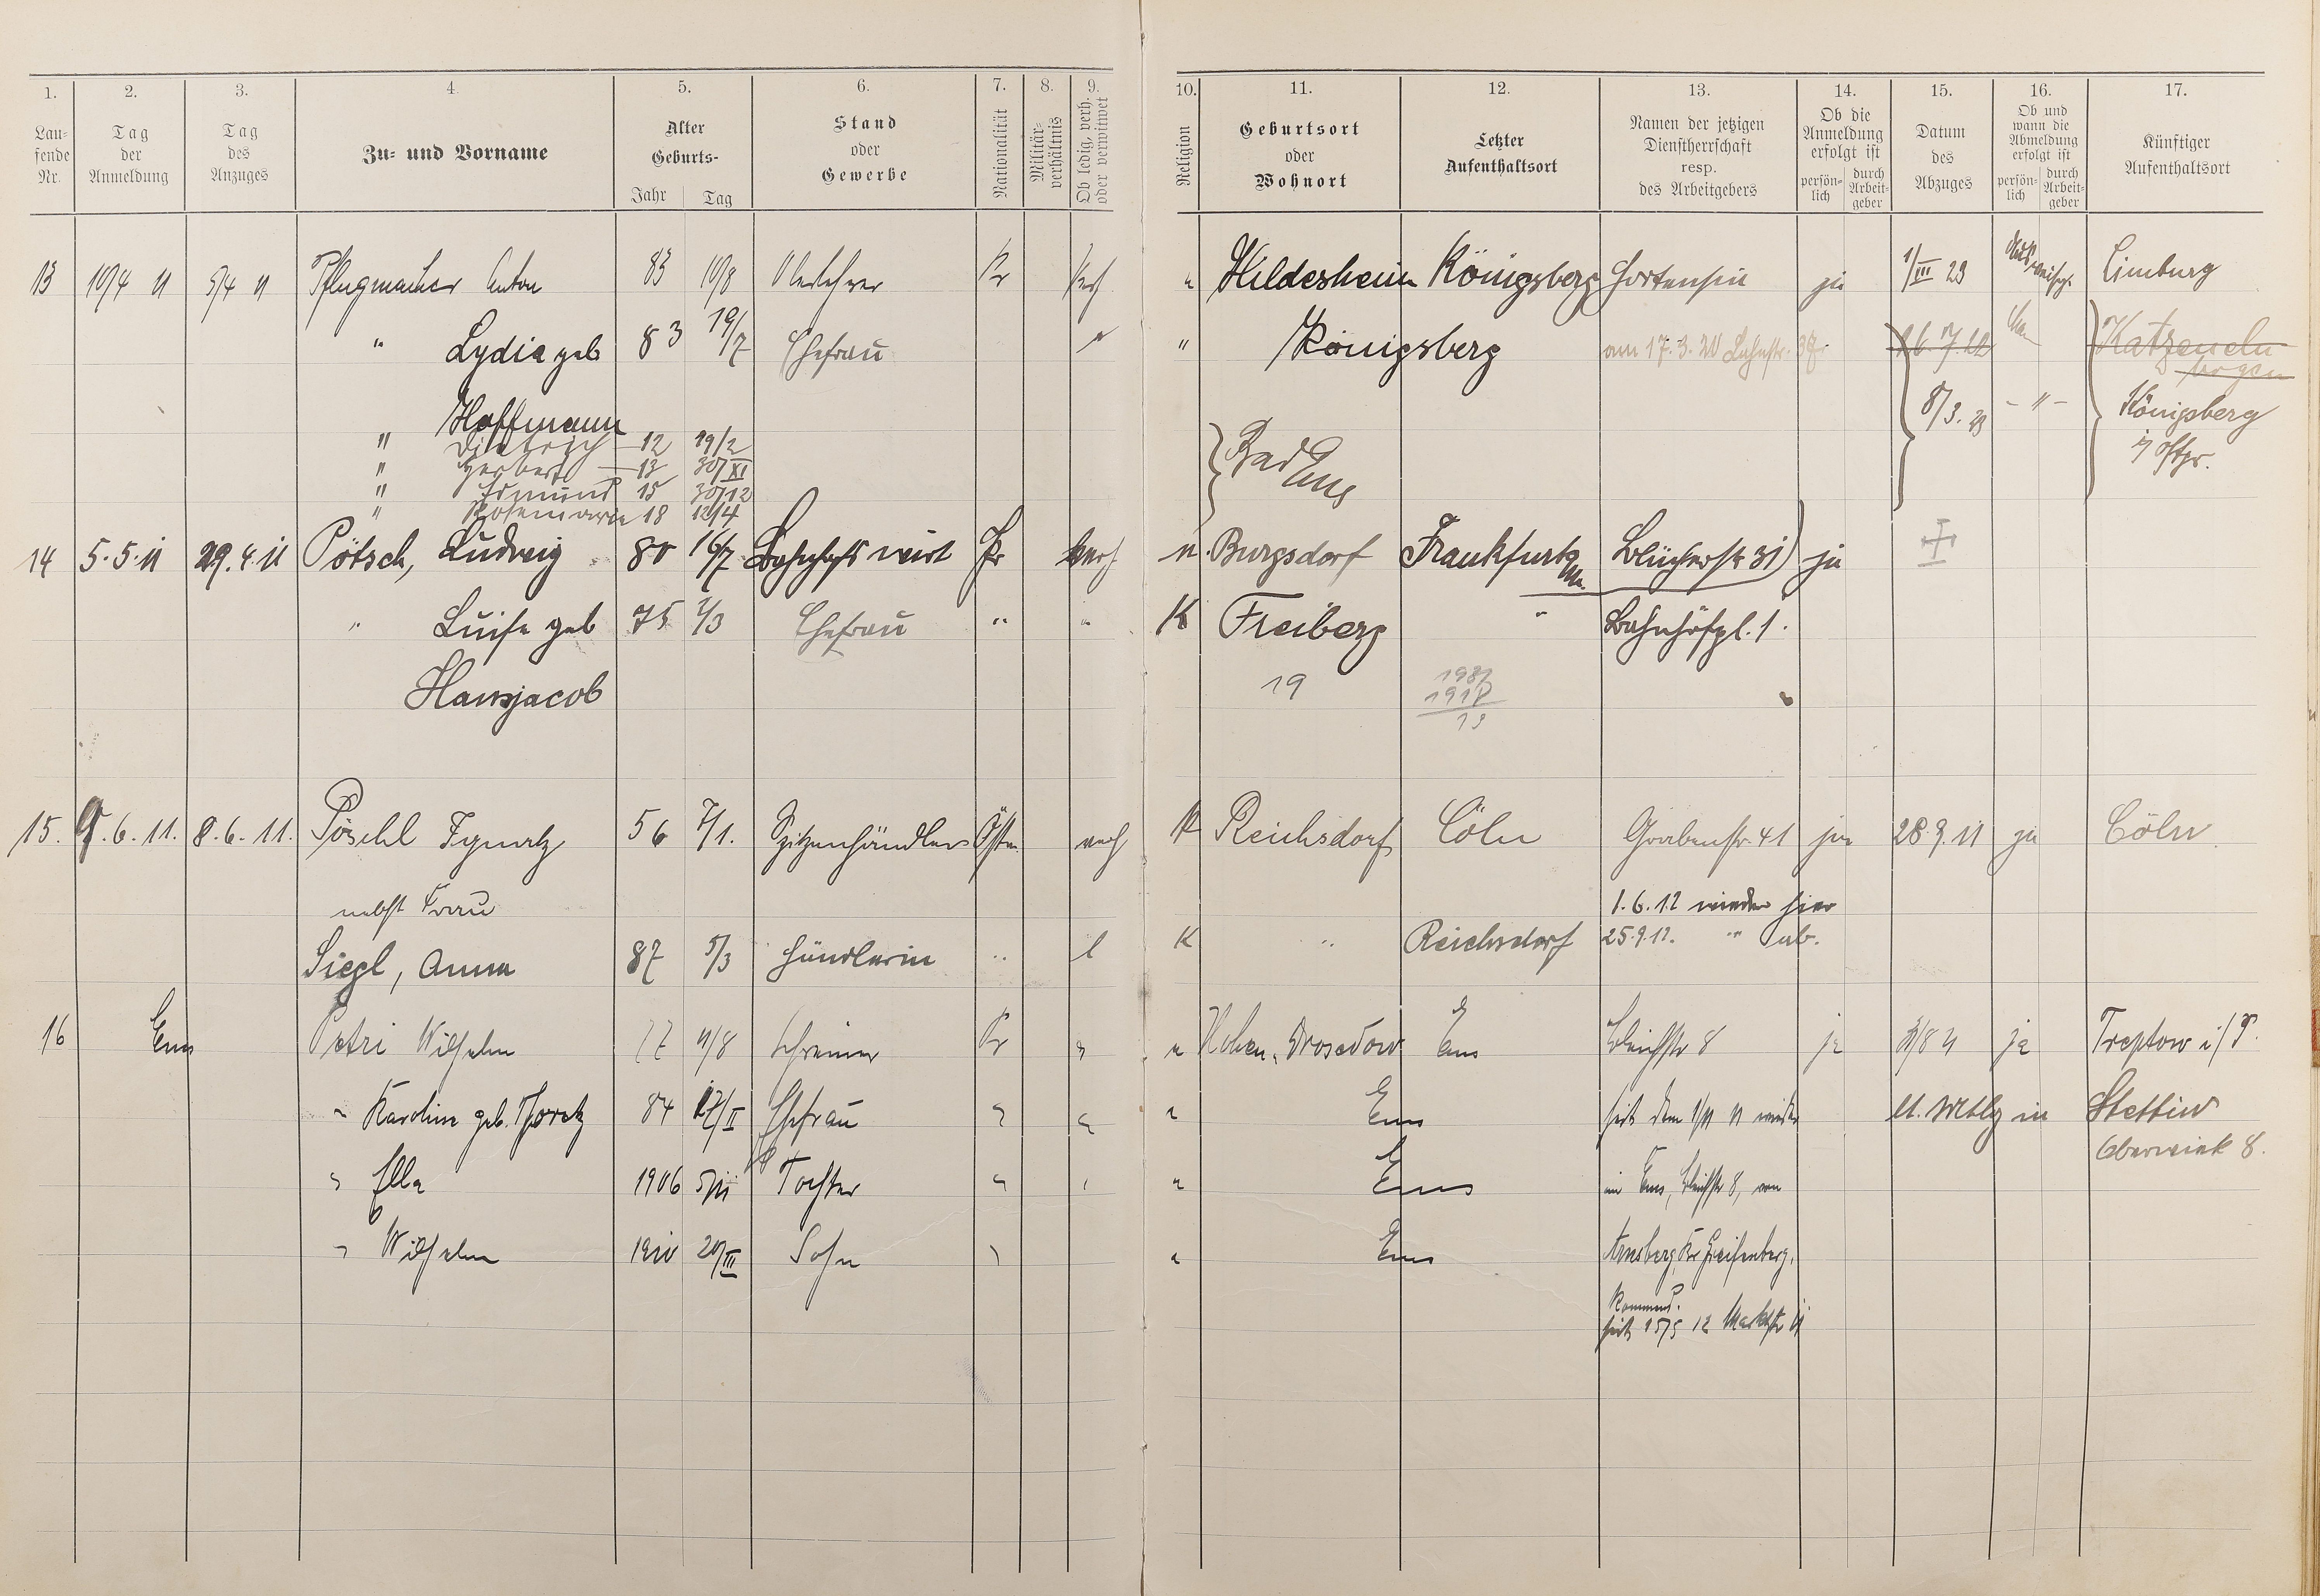 1. 2. 3. 4. 5. 6. 7. 8. 9. 10. 11. 12. 13. 14. 15. 16. 17.
Laufende Nr.
Tag der Anmeldung
Tag des Anzuges
Zu- und Vorname
Alter
Geburts-
Jahr Tag
Stand oder Gewerbe
Nationalität
Militärverhältnis
Ob ledig, verh. oder verwitwet
Religion
Geburtsort oder Wohnort
Letzter Aufenthaltsort
Namen der jetzigen Dienstherrschaft resp. des Arbeitgebers
Ob die Anmeldung erfolgt ist
persönlich durch Arbeitgeber
Datum des Abzuges
Ob und wann die Abmeldung erfolgt ist
persönlich durch Arbeitgeber
Künftiger Aufenthaltsort
13 10/4 11 5/4 11 Pflugmacher Anton 83 10/8 Oberlehrer Pr verh " Hildesheim Königsberg ja 1/III 23 Limburg
" Lydia geb 83 19/7 Ehefrau " " Königsberg am 17.3.20 Lahnstr. 37. Katzenelnbogen
Hoffmann 8/3. 23 - " - Königsberg
" Dietrich 12 19/2 Bad Ems i/ Ostpr.
" Herbert 13 30/XI
" Edmund 15 30/12
" Rosemarie 18 12/4
14 5.5.11 29.4.11 Pötsch, Ludwig 80 16/7 Bahnhofswirt Pr verh Burgsdorf Frankfurt a/M. Blücherstr 31 ja
" Luise geb 75 1/3 Ehefrau " " K Freiberg " Bahnhofpl. 1.
Hansjacob 19
15. 9.6.11. 8.6.11. Pöschl Ignatz 56 7/1. Spitzenhändler Östr. verh K Reichsdorf Cöln Grabenstr. 41 ja 28.9.11 ja Cöln
nebst Frau 1.6.12 wieder hier
Siegl, Anna 87 5/3 Händlerin " l K " Reichsdorf 25.9.12. " ab.
16 Ems Petri Wilhelm 77 11/8 Schreiner Pr " Hohen-Drosedow Ems Bleichstr 8 ja ja Treptow i/P.
" Karoline geb. 84 Ehefrau " " " Ems seit dem 1/11 11 wieder in Stettin
Oberwiek 8.
" Ella 1906 Tochter " " " Ems in Ems, Bleichstr 8, von
" Wilhelm 1910 20/III Sohn " " Ems Arnsberg, Kr. Greifenberg,
kommend.
seit 15/5 12 Marktstr 11